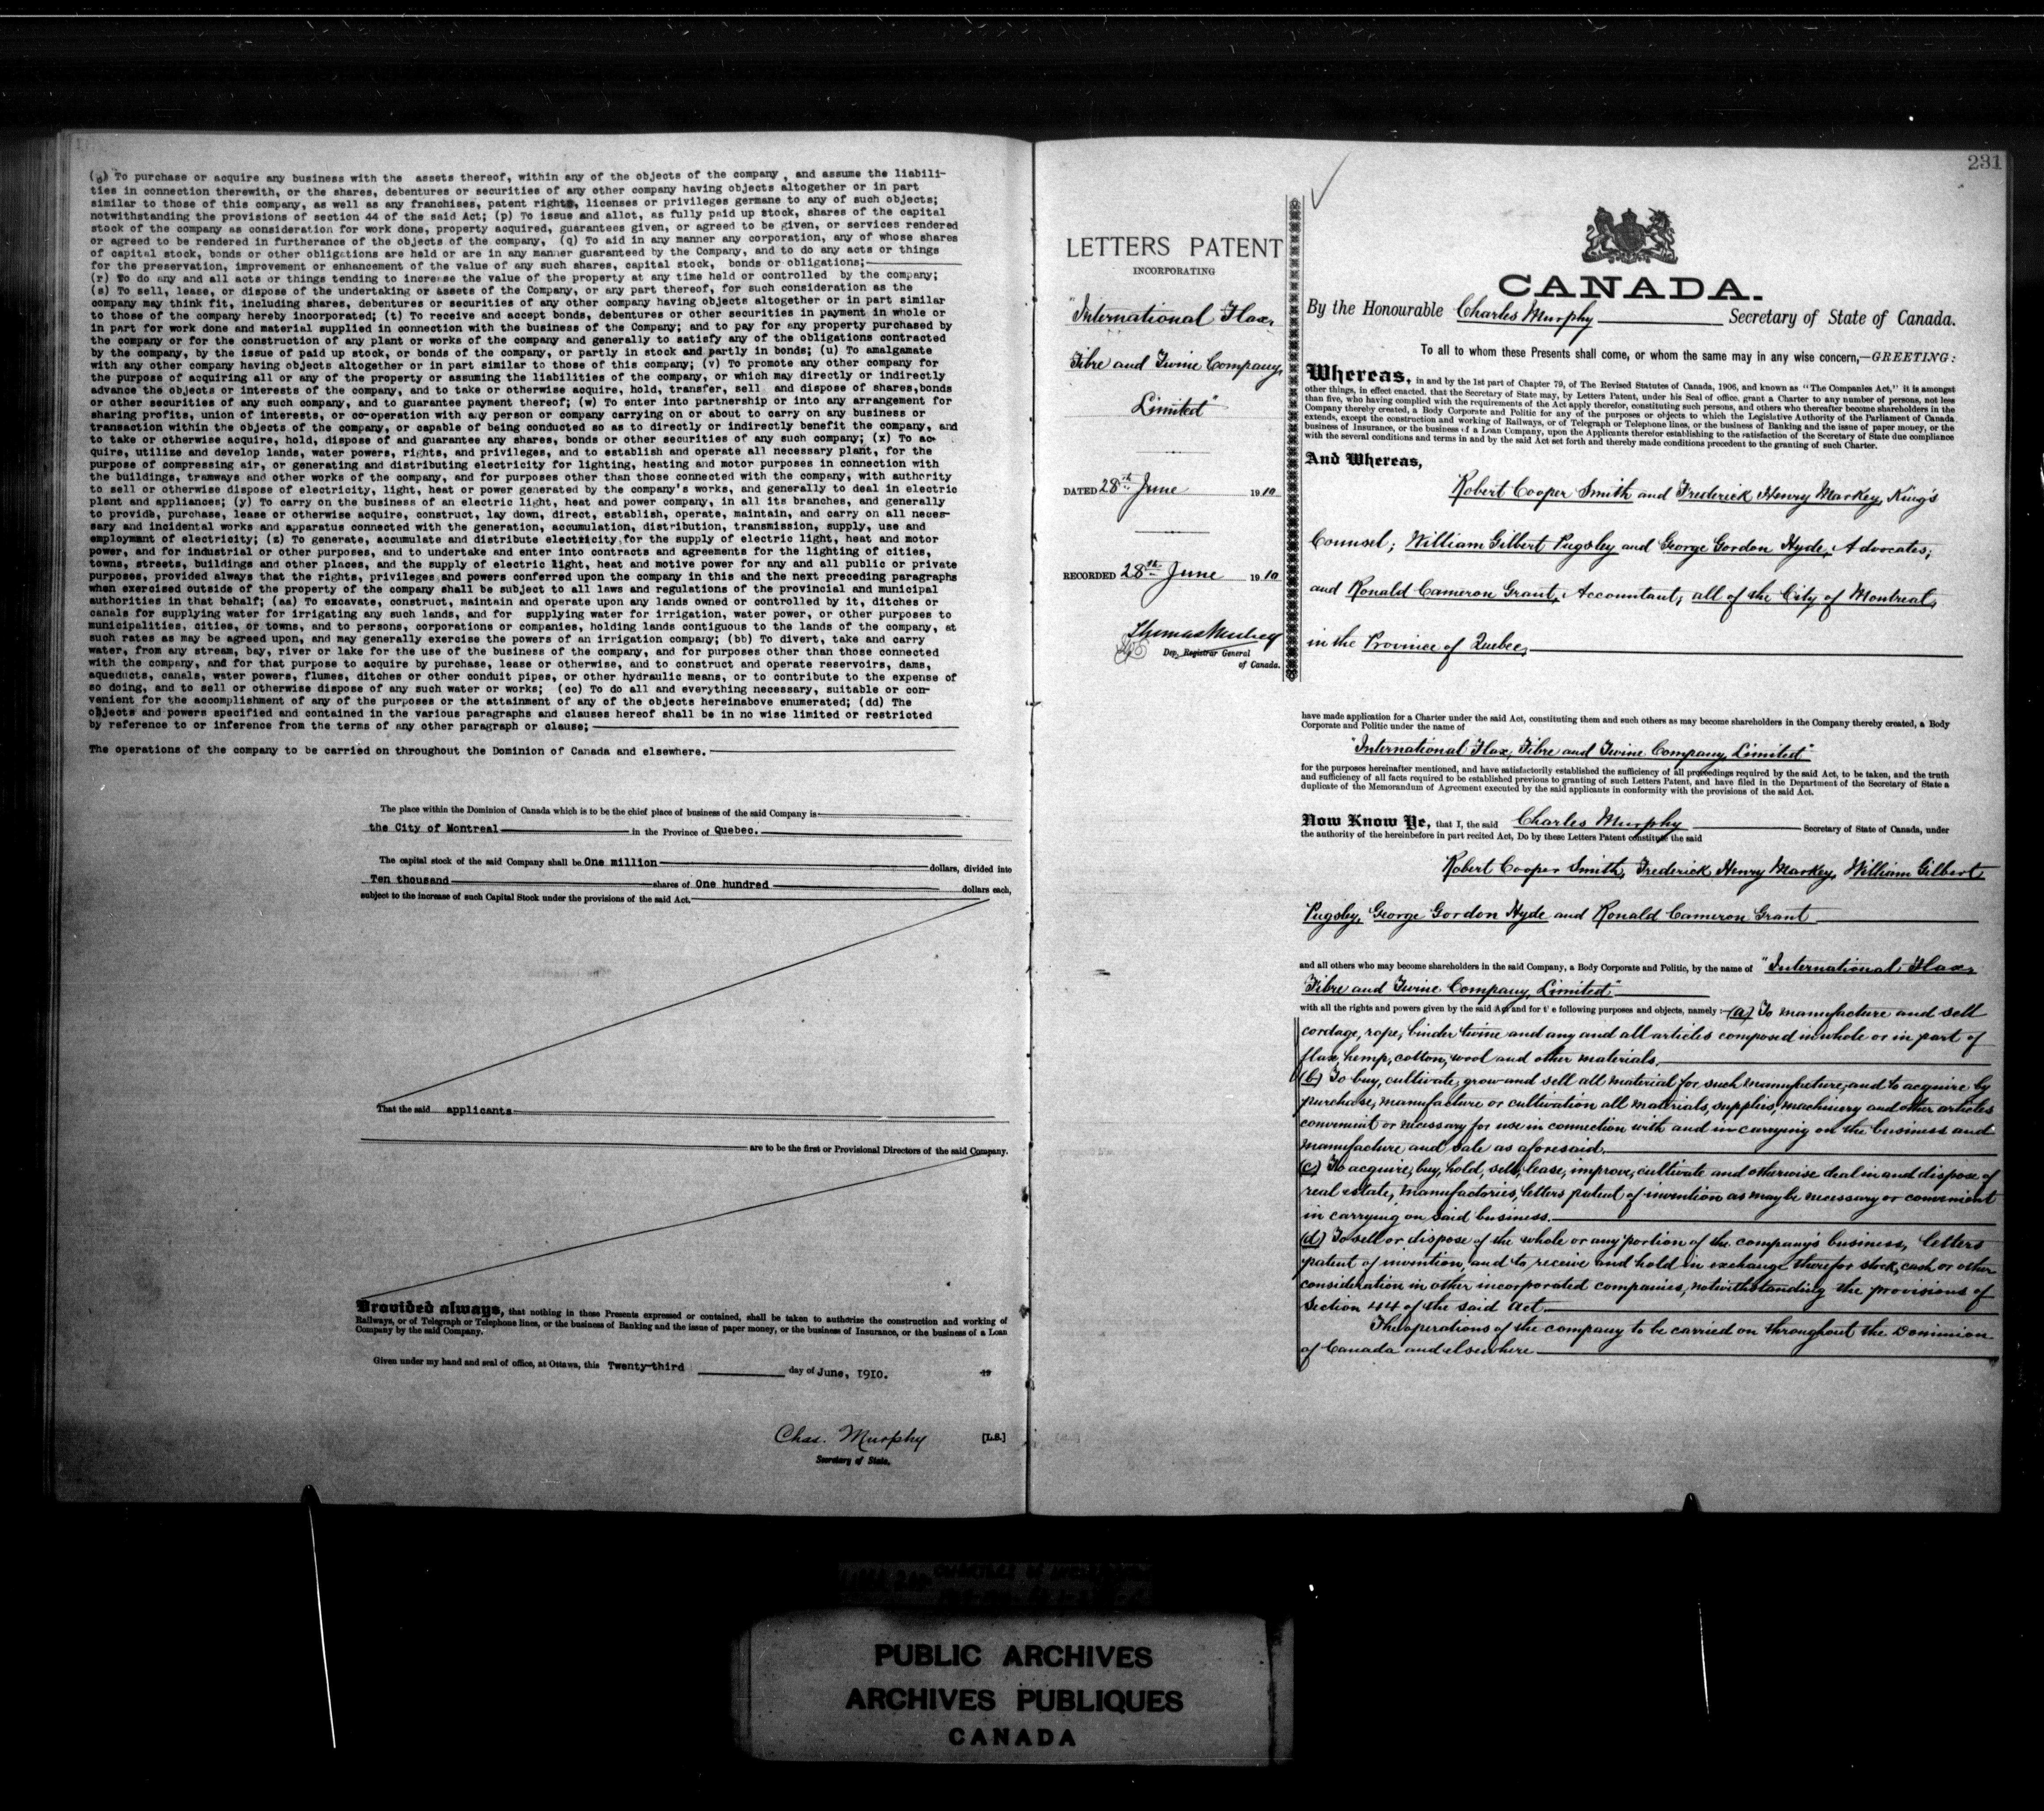 (o) To purchase or acquire any business with the assets thereof, within any of the objects of the company, and assume the liabili-
ties in connection therewith, or the shares, debentures or securities of any other company having objects altogether or in part
similar to those of this company, as well as any franchises, patent rights, licenses or privileges germane to any of such objects;
notwithstanding the provisions of section 44 of the said Act; (p) To issue and allot, as fully paid up stock, shares of the capital
stock of the company as consideration for work done, property acquired, guarantees given, or agreed to be given, or services rendered
or agreed to be rendered in furtherance of the objects of the company, (q) To aid in any manner any corporation, any of whose shares
of capital stock, bonds or other obligations are held or are in any manner guaranteed by the Company, and to do any acts or things
for the preservation, improvement or enhancement of the value of any such shares, capital stock, bonds or obligations;
(r) To do any and all acts or things tending to increase the value of the property at any time held or controlled by the company;
(s) To sell, lease, or dispose of the undertaking or assets of the Company, or any part thereof, for such consideration as the
company may think fit, including shares, debentures or securities of any other company having objects altogether or in part similar
to those of the company hereby incorporated; (t) To receive and accept bonds, debentures or other securities in payment in whole or
in part for work done and material supplied in connection with the business of the Company; and to pay for any property purchased by
the company or for the construction of any plant or works of the company and generally to satisfy any of the obligations contracted
by the company, by the issue of paid up stock, or bonds of the company, or partly in stock and partly in bonds; (u) To amalgamate
with any other company having objects altogether or in part similar to those of this company; (v) To promote any other company for
the purpose of acquiring all or any of the property or assuming the liabilities of the company, or which may directly or indirectly
advance the objects or interests of the company, and to take or otherwise acquire, hold, transfer, sell and dispose of shares,bonds
or other securities of any such company, and to guarantee payment thereof; (w) To enter into partnership or into any arrangement for
sharing profits, union of interests, or co-operation with any person or company carrying on or about to carry on any business or
transaction within the objects of the company, or capable of being conducted so as to directly or indirectly benefit the company, and
to take or otherwise acquire, hold, dispose of and guarantee any shares, bonds or other securities of any such company; (x) To ac-
quire, utilize and develop lands, water powers, rights, and privileges, and to establish and operate all necessary plant, for the
purpose of compressing air, or generating and distributing electricity for lighting, heating and motor purposes in connection with
the buildings, tramways and other works of the company, and for purposes other than those connected with the company, with authority
to sell or otherwise dispose of electricity, light, heat or power generated by the company's works, and generally to deal in electric
plant and appliances; (y) To carry on the business of an electric light, heat and power company, in all its branches, and generally
to provide, purchase, lease or otherwise acquire, construct, lay down, direct, establish, operate, maintain, and carry on all neces-
sary and incidental works and apparatus connected with the generation, accumulation, distribution, transmission, supply, use and
employment of electricity; (z) To generate, accumulate and distribute electricity for the supply of electric light, heat and motor
power, and for industrial or other purposes, and to undertake and enter into contracts and agreements for the lighting of cities,
towns, streets, buildings and other places, and the supply of electric light, heat and motive power for any and all public or private
purposes, provided always that the rights, privileges and powers conferred upon the company in this and the next preceding paragraphs
when exercised outside of the property of the company shall be subject to all laws and regulations of the provincial and municipal
authorities in that behalf; (aa) To excavate, construct, maintain and operate upon any lands owned or controlled by it, ditches or
canals for supplying water for irrigating any such lands, and for supplying water for irrigation, water power, or other purposes to
municipalities, cities, or towns, and to persons, corporations or companies, holding lands contiguous to the lands of the company, at
such rates as may be agreed upon, and may generally exercise the powers of an irrigation company; (bb) To divert, take and carry
water, from any stream, bay, river or lake for the use of the business of the company, and for purposes other than those connected
with the company, and for that purpose to acquire by purchase, lease or otherwise, and to construct and operate reservoirs, dams,
aqueducts, canals, water powers, flumes, ditches or other conduit pipes, or other hydraulic means, or to contribute to the expense of
so doing, and to sell or otherwise dispose of any such water or works; (cc) To do all and everything necessary, suitable or con-
venient for the accomplishment of any of the purposes or the attainment of any of the objects hereinabove enumerated; (dd) The
objects and powers specified and contained in the various paragraphs and clauses hereof shall be in no wise limited or restricted
by reference to or inference from the terms of any other paragraph or clause;
The operations of the company to be carried on throughout the Dominion of Canada and elsewhere.
The place within the Dominion of Canada which is to be the chief place of business of the said Company is
the City of Montreal in the Province of Quebec.
The capital stock of the said Company shall be One million dollars, divided into
Ten thousand shares of One hundred dollars each,
subject to the increase of such Capital Stock under the provisions of the said Act.
That the said applicants
are to be the first or Provisional Directors of the said Company.
Provided always, that nothing in these Presents expressed or contained, shall be taken to authorize the construction and working of
Railways, or of Telegraph or Telephone lines, or the business of Banking and the issue of paper money, or the business of Insurance, or the business of a Loan
Company by the said Company.
Given under my hand and seal of office, at Ottawa, this Twenty-third day of June, 1910. 19
Chas. Murphy [L.S.]
Secretary of State.
231
LETTERS PATENT
INCORPORATING
"International Flax,
Fibre and Twine Company,
Limited"
DATED 28th June 1910
RECORDED 28th June 1910
Thomas Mulvey
Dep. Registrar General
of Canada.
CANADA.
By the Honourable Charles Murphy Secretary of State of Canada.
To all to whom these Presents shall come, or whom the same may in any wise concern,—GREETING:
Whereas, in and by the 1st part of Chapter 79, of The Revised Statutes of Canada, 1906, and known as "The Companies Act," it is amongst
other things, in effect enacted, that the Secretary of State may, by Letters Patent, under his Seal of office, grant a Charter to any number of persons, not less
than five, who having complied with the requirements of the Act apply therefor, constituting such persons, and others who thereafter become shareholders in the
Company thereby created, a Body Corporate and Politic for any of the purposes or objects to which the Legislative Authority of the Parliament of Canada
extends, except the construction and working of Railways, or of Telegraph or Telephone lines, or the business of Banking and the issue of paper money, or the
business of Insurance, or the business of a Loan Company, upon the Applicants therefor establishing to the satisfaction of the Secretary of State due compliance
with the several conditions and terms in and by the said Act set forth and thereby made conditions precedent to the granting of such Charter.
And Whereas,
Robert Cooper Smith and Frederick Henry Markey, King's
Counsel; William Gilbert Pugsley and George Gordon Hyde, Advocates;
and Ronald Cameron Grant, Accountant, all of the City of Montreal,
in the Province of Quebec,
have made application for a Charter under the said Act, constituting them and such others as may become shareholders in the Company thereby created, a Body
Corporate and Politic under the name of
"International Flax, Fibre and Twine Company, Limited"
for the purposes hereinafter mentioned, and have satisfactorily established the sufficiency of all proceedings required by the said Act, to be taken, and the truth
and sufficiency of all facts required to be established previous to granting of such Letters Patent, and have filed in the Department of the Secretary of State a
duplicate of the Memorandum of Agreement executed by the said applicants in conformity with the provisions of the said Act.
Now Know Ye, that I, the said Charles Murphy Secretary of State of Canada, under
the authority of the hereinbefore in part recited Act, Do by these Letters Patent constitute the said
Robert Cooper Smith, Frederick Henry Markey, William Gilbert
Pugsley, George Gordon Hyde and Ronald Cameron Grant
and all others who may become shareholders in the said Company, a Body Corporate and Politic, by the name of "International Flax,
Fibre and Twine Company, Limited"
with all the rights and powers given by the said Act and for t e following purposes and objects, namely:—(a) To manufacture and sell
cordage, rope, binder twine and any and all articles composed in whole or in part of
flax, hemp, cotton, wool and other materials.
(b) To buy, cultivate, grow and sell all material for such manufacture, and to acquire by
purchase, manufacture or cultivation all materials, supplies, machinery and other articles
convenient or necessary for use in connection with and in carrying on the business and
manufacture and sale as aforesaid.
(c) To acquire, buy, hold, sell, lease, improve, cultivate and otherwise deal in and dispose of
real estate, manufactories, letters patent of invention as may be necessary or convenient
in carrying on said business.
(d) To sell or dispose of the whole or any portion of the company's business, letters
patent of invention, and to receive and hold in exchange therefor stock, cash or other
consideration in other incorporated companies, notwithstanding the provisions of
Section 44 of the said Act.
The operations of the company to be carried on throughout the Dominion
of Canada and elsewhere
PUBLIC ARCHIVES
ARCHIVES PUBLIQUES
CANADA